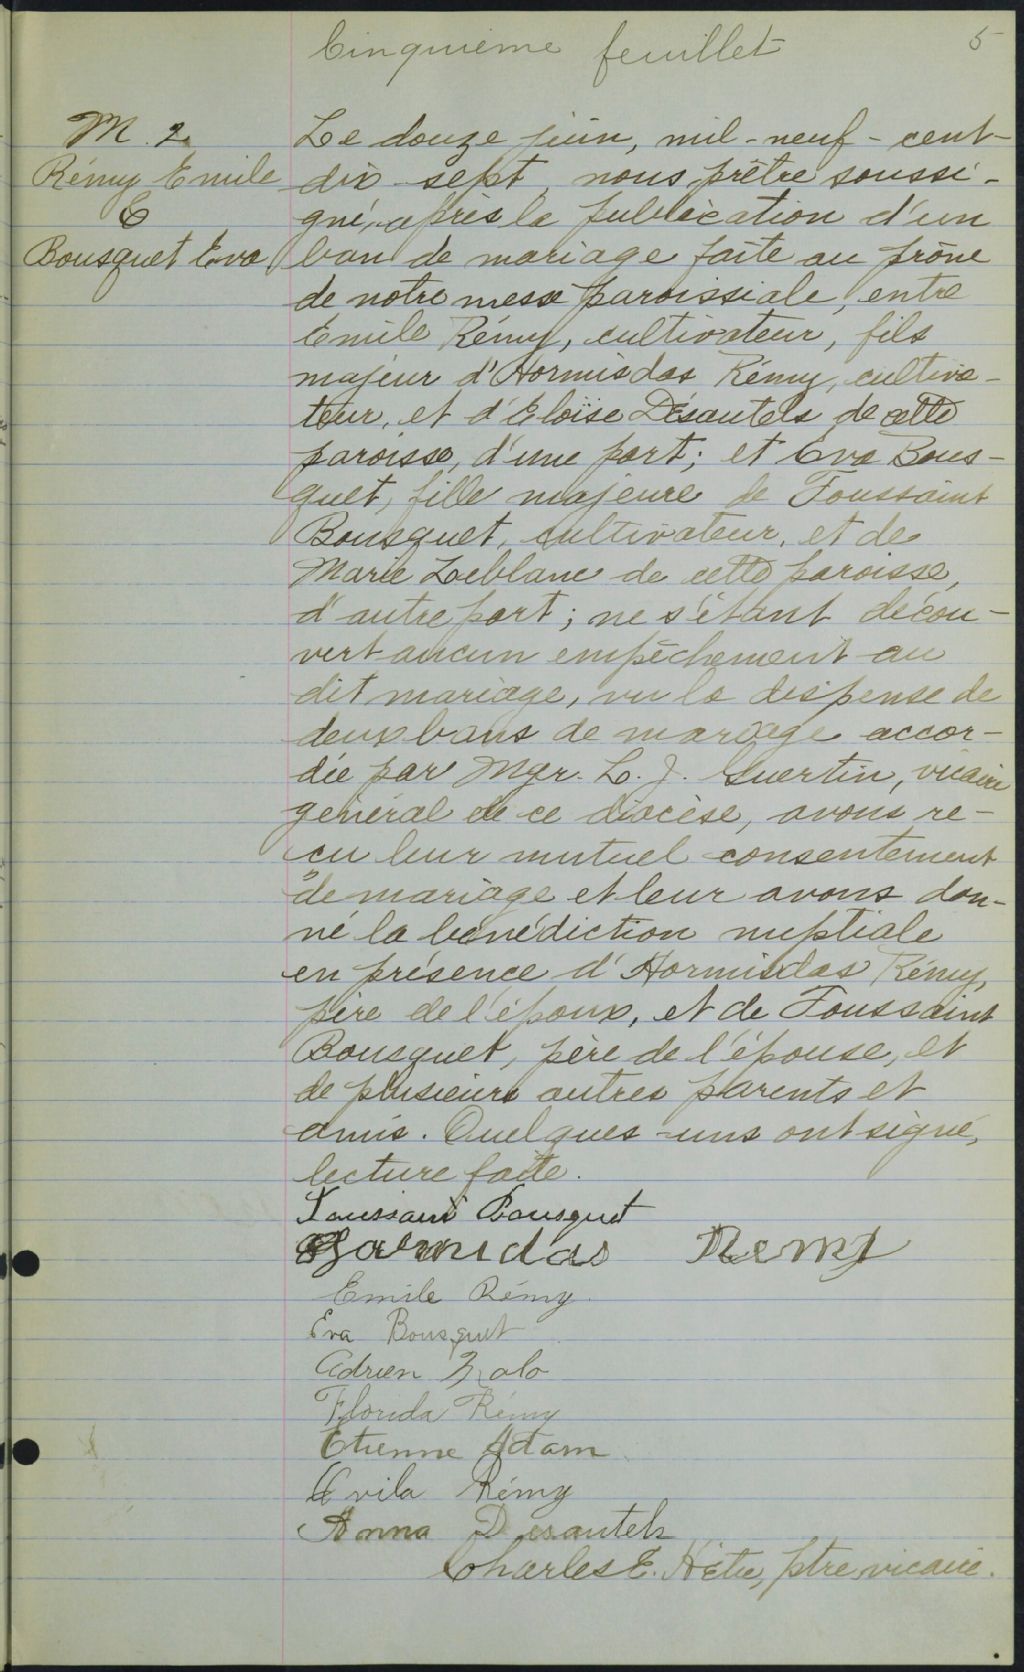 Cinquième feuillet
5
M. 2
Rémy Emile
&
Bousquet Eva
Le douze juin, mil-neuf-cent-
dix-sept, nous prêtre soussi-
gné, après la publication d'un
ban de mariage faite au prône
de notre messe paroissiale, entre
Emile Rémy, cultivateur, fils
majeur d'Hormisdas Rémy, cultiva-
teur, et d'Eloïse Désautels de cette
paroisse, d'une part; et Eva Bous-
quet, fille majeure de Toussaint
Bousquet, cultivateur, et de
Marie Leblanc de cette paroisse,
d'autre part; ne s'étant décou-
vert aucun empêchement au
dit mariage, vu la dispense de
deux bans de mariage accor-
dée par Mgr. L. J. Guertin, vicaire
général de ce diocèse, avons re-
çu leur mutuel consentement
de mariage et leur avons don-
né la bénédiction nuptiale
en présence d'Hormisdas Rémy,
père de l'époux, et de Toussaint
Bousquet, père de l'épouse, et
de plusieurs autres parents et
amis. Quelques-uns ont signé,
lecture faite.
Toussaint Bousquet
Harmidas Remy
Emile Rémy
Eva Bousquet
Adrien Malo
Florida Rémy
Etienne Adam
Avila Rémy
Anna Desautels
Charles E. Hétu, ptre, vicaire.